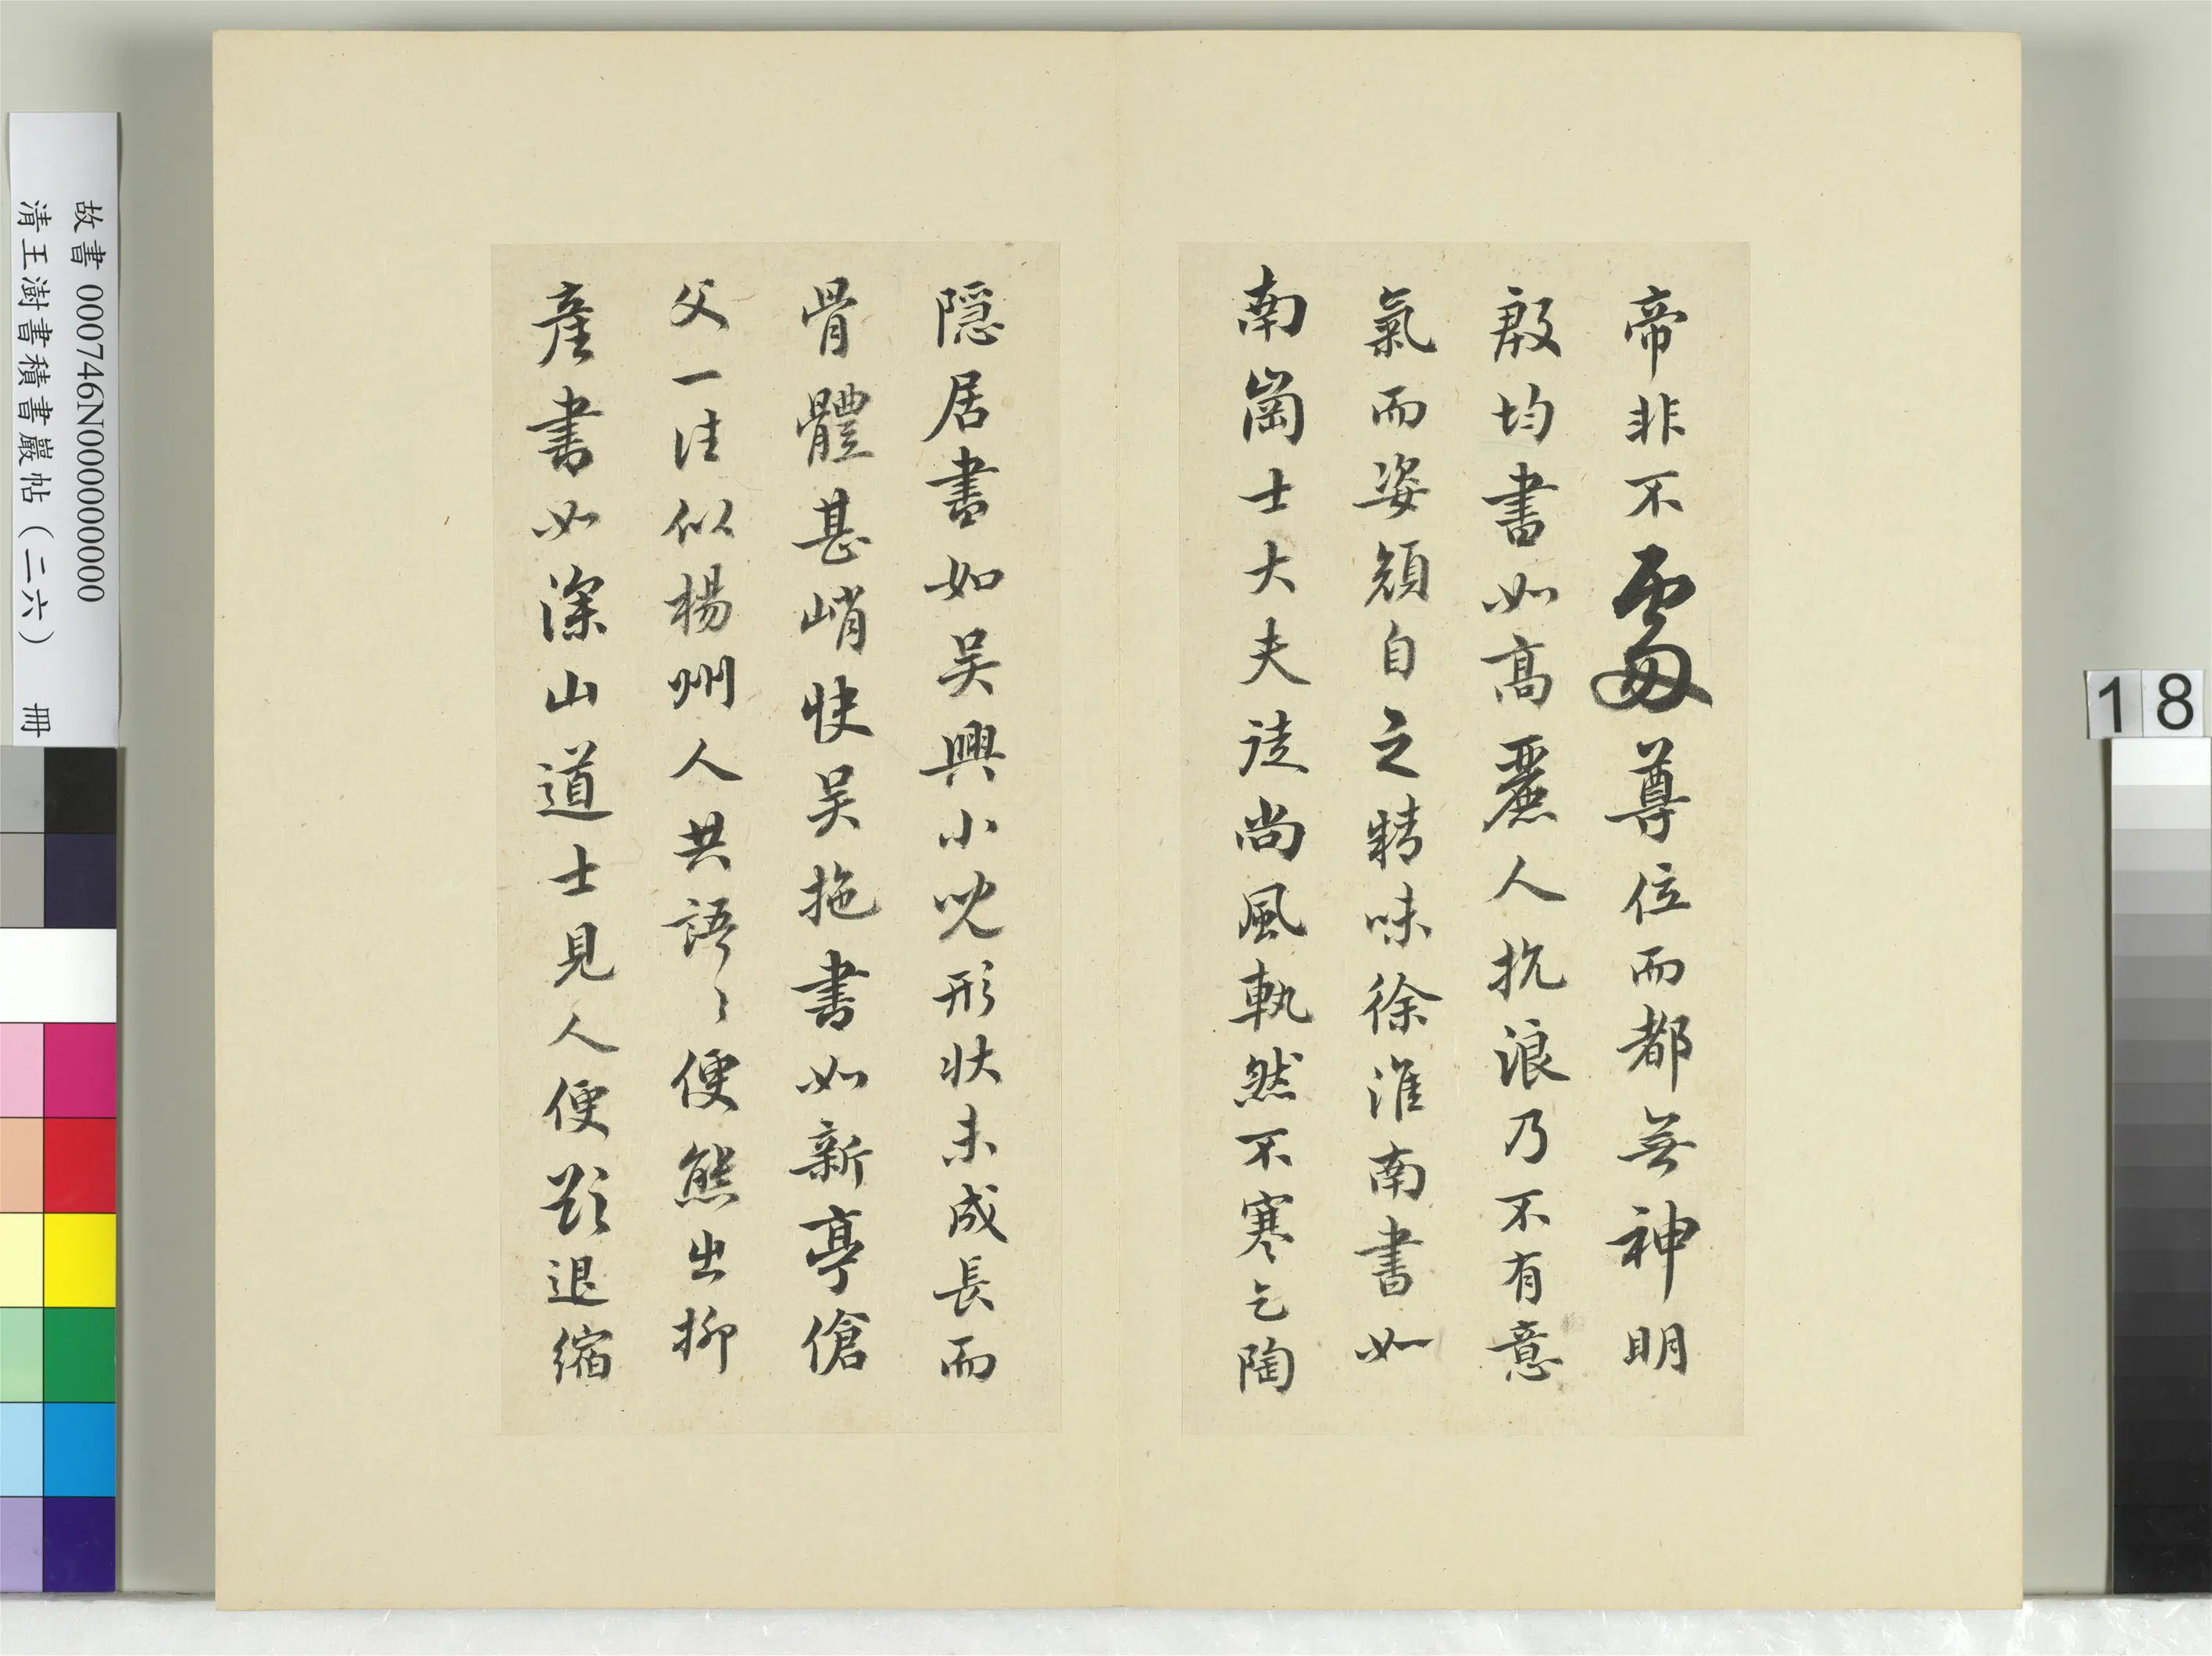 帝非不處尊位而都無神明
殷均書如高麗人抗浪乃不有意
氣而姿顏自之精味徐淮南書如
南崗士大夫徒尚風軌然不寒乞陶
隱居書如吴興小兒形狀未成長而
骨體甚峭快吴拖書如新亭傖
父一往似楊州人共語〻便態出柳
產書如深山道士見人便欲退縮
故書 000746N000000000
清王澍書積書巖帖(二六) 冊
18